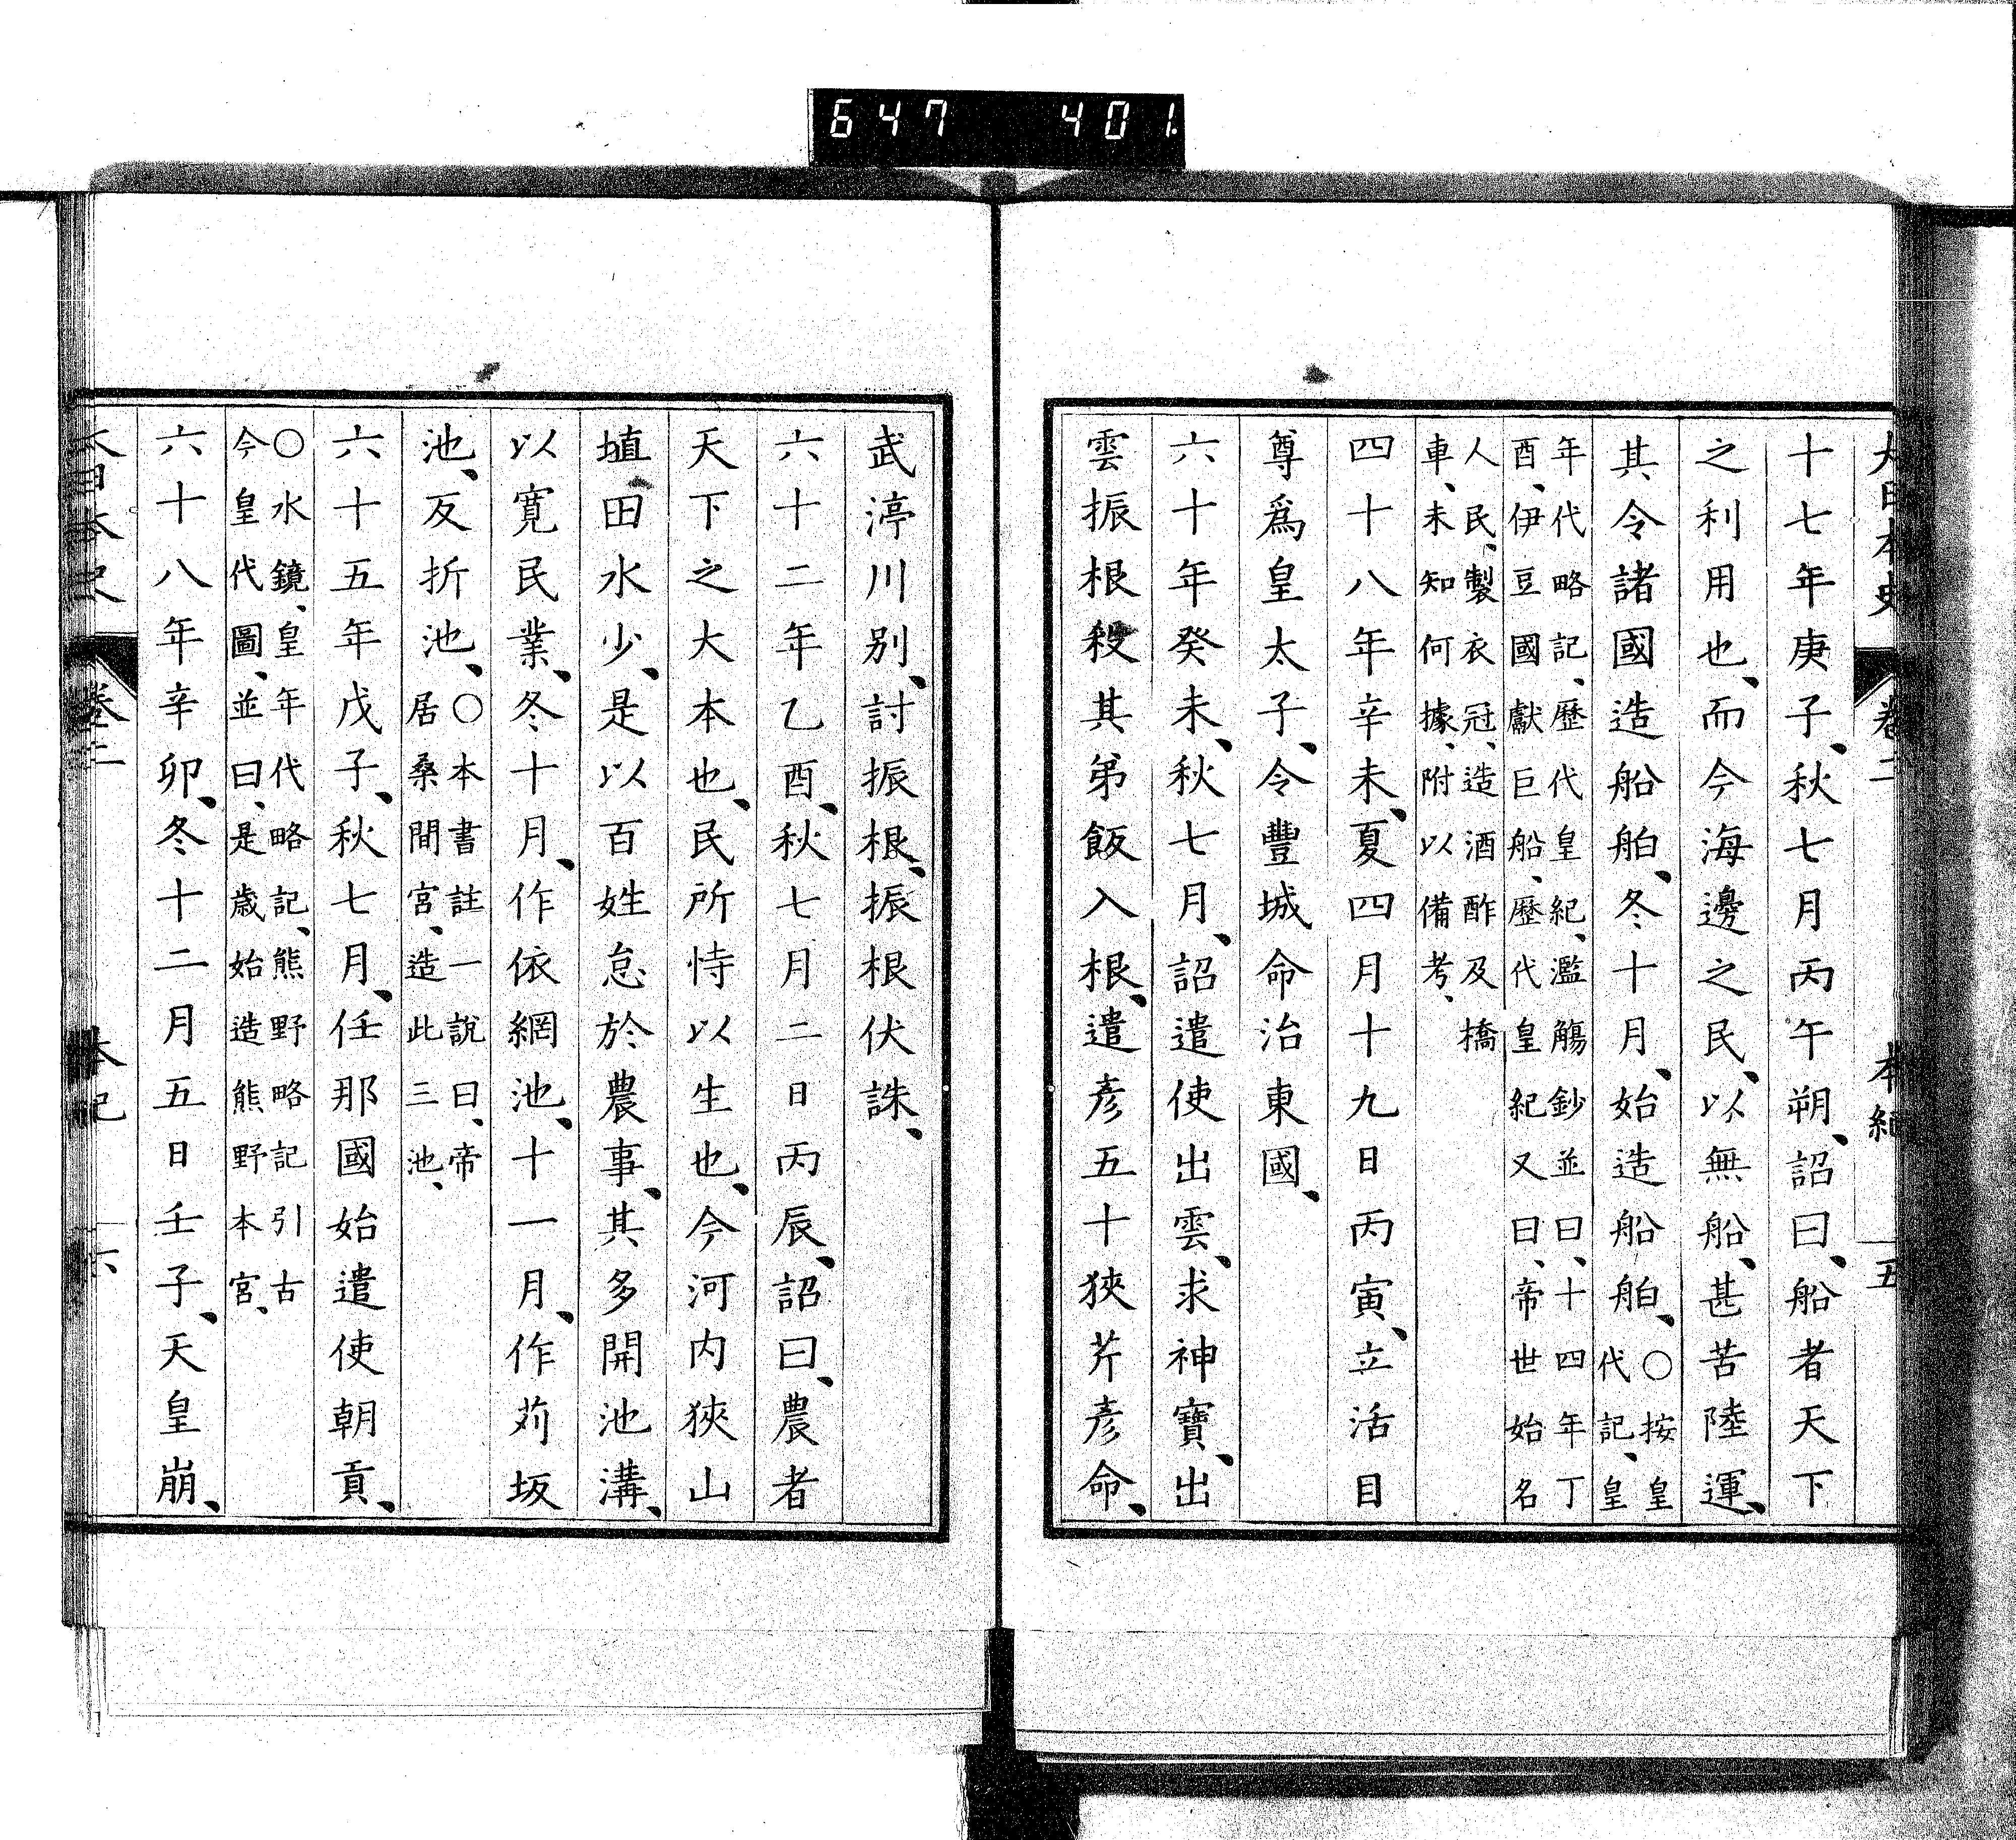 647 401.
大日本史 卷二 本紀 五
十七年庚子、秋七月丙午朔、詔曰、船者天下
之利用也、而今海邊之民、以無船、甚苦陸運、
其令諸國造船舶、冬十月、始造船舶、○按皇
代記、皇
年代略記、歷代皇紀、濫觴鈔並曰、十四年丁
酉、伊豆國獻巨船、歷代皇紀又曰、帝世始名
人民、製衣冠、造酒酢及橋
車、未知何據、附以備考、
四十八年辛未、夏四月十九日丙寅、立活目
尊爲皇太子、令豐城命治東國、
六十年癸未、秋七月、詔遣使出雲、求神寶、出
雲振根殺其弟飯入根、遣彥五十狹芹彥命、
武渟川別、討振根、振根伏誅、
六十二年乙酉、秋七月二日丙辰、詔曰、農者
天下之大本也、民所恃以生也、今河內狹山
埴田水少、是以百姓怠於農事、其多開池溝、
以寬民業、冬十月、作依網池、十一月、作苅坂
池、反折池、○本書註一說曰、帝
居桑間宮、造此三池、
六十五年戊子、秋七月、任那國始遣使朝貢、
○水鏡、皇年代略記、熊野略記引古
今皇代圖、並曰、是歲始造熊野本宮、
六十八年辛卯、冬十二月五日壬子、天皇崩、
大日本史 卷二 本紀 六